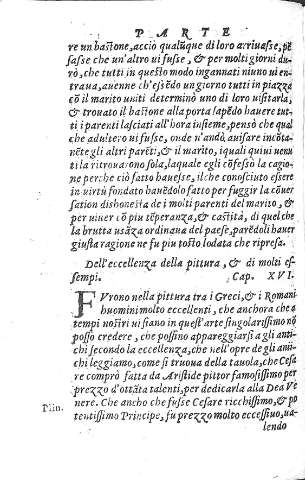 PARTE
re un bastone, acciò qualũque di loro arriuasse, pẽ
sasse che un'altro ui fusse, & per molti giorni du
rò, che tutti in questo modo ingannati niuno ui en-
traua, auenne ch'essẽdo un giorno tutti in piazza
cõ il marito uniti determinò uno di loro uisitarla,
& trouato il bastone alla porta sapẽdo hauere tut
ti i parenti lasciati all'hora insieme, pensò che qual
che adultero ui fusse, onde n'andò auisare incõta-
nẽte gli altri parẽti, & il marito, iquali quiui uenu
ti la ritrouarono sola, laquale egli cõfessò la cagio
ne perche ciò fatto hauesse, il che conosciuto essere
in uirtù fondato hauẽdolo fatto per fuggir la cõuer
sation dishonesta de i molti parenti del marito, &
per uiuer cõ piu tẽperanza, & castità, di quel che
la brutta usãza ordinaua del paese, parẽdoli hauer
giusta ragione ne fu piu tosto lodata che ripresa.
Dell'eccellenza della pittura, & di molti es
sempi. Cap. XVI.
FVrono nella pittura tra i Greci, & i Romani
huomini molto eccellenti, che anchora che a
tempi nostri ui siano in quest'arte singolarissimi nõ
posso credere, che possino appareggiarsi a gli anti-
chi secondo la eccellenza, che nell'opre de gli anti-
chi leggiamo, come si truoua della tauola, che Cesa
re comprò fatta da Aristide pittor famosissimo per
prezzo d'ottãta talenti, per dedicarla alla Dea Ve
Plin. nere. Che ancho che fusse Cesare ricchissimo, & po
tentissimo Principe, fu prezzo molto eccessiuo, ua-
lendo